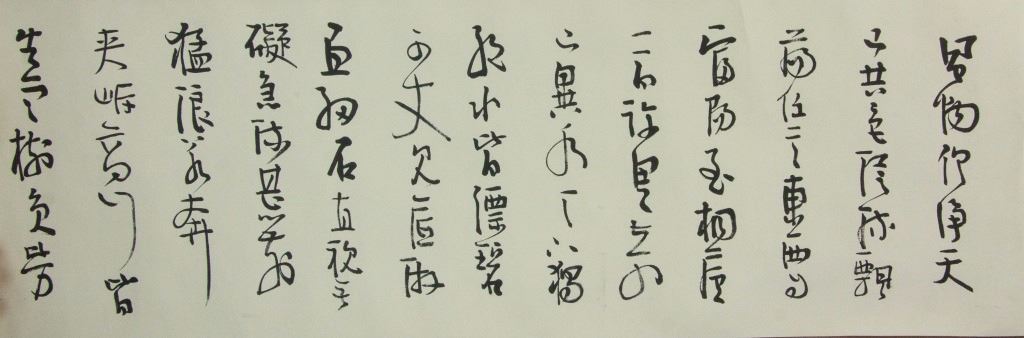 風煙俱淨天
山共色從流飄
蕩任意東西自
富陽至桐廬
一百許里奇山
異水天下獨
絕水皆縹碧
千丈見底游
魚細石直視無
礙急湍甚箭
猛浪若奔
夾岸高山皆
生寒樹負勢